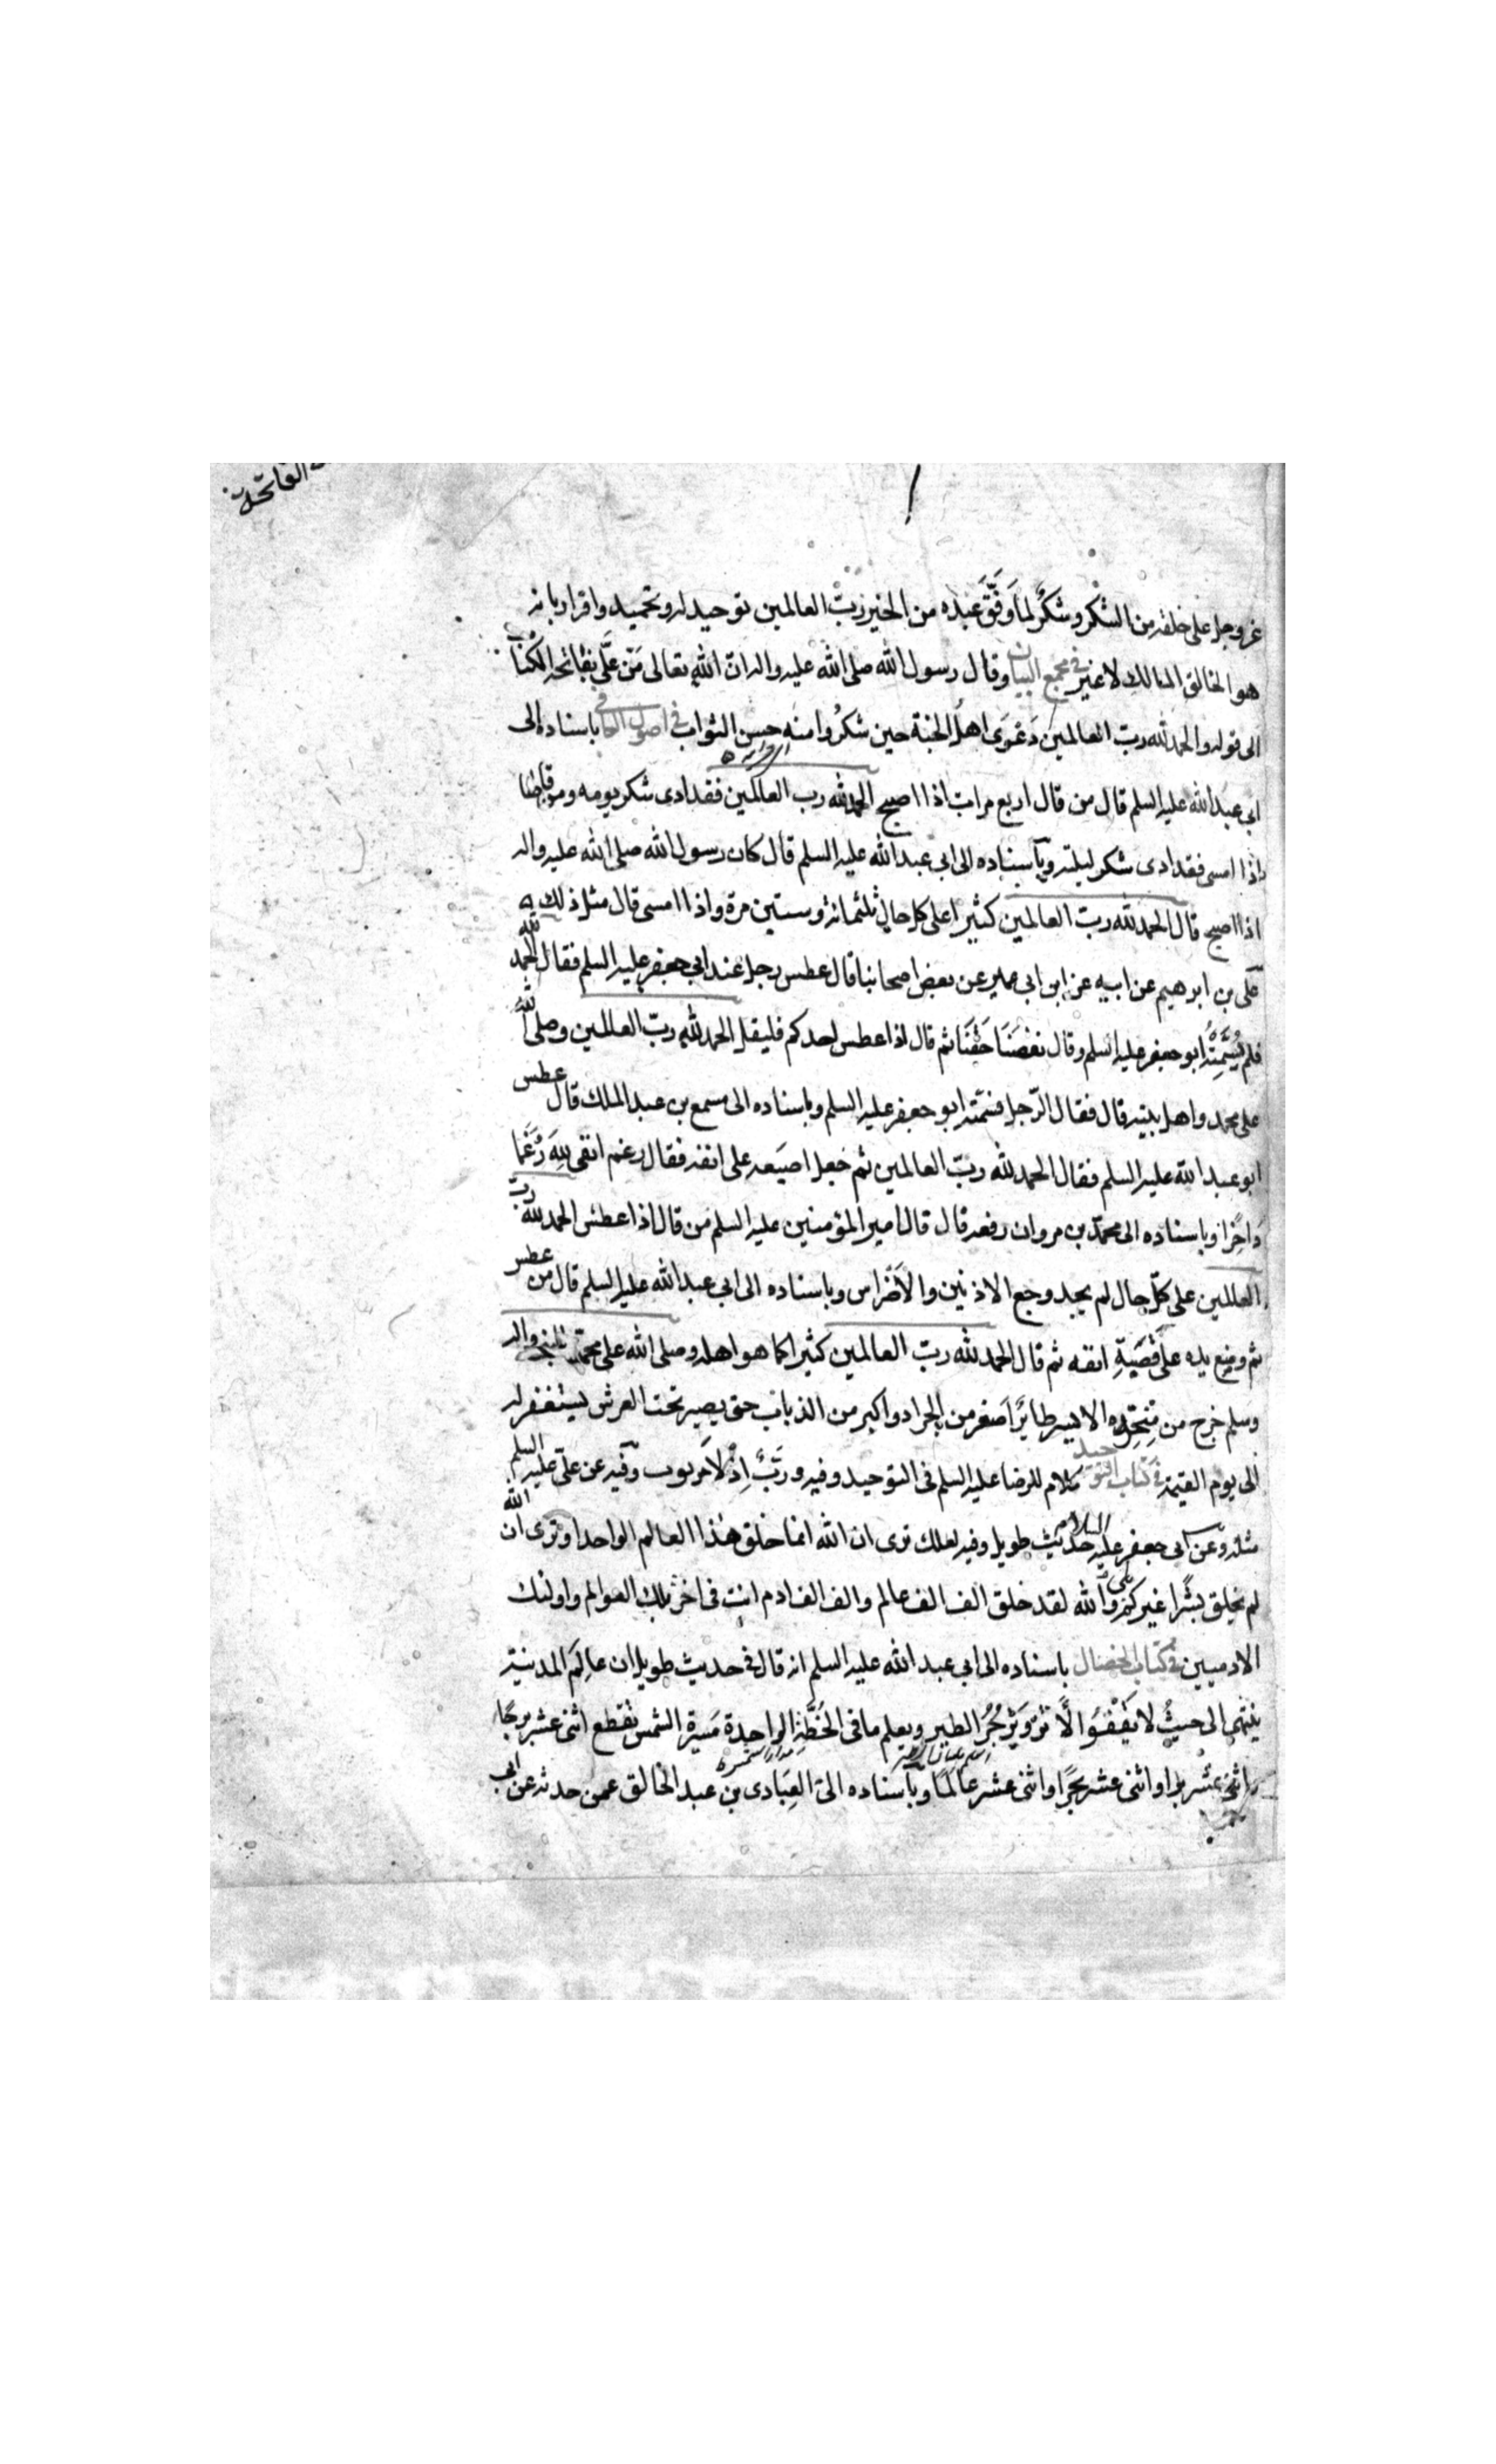 الفاتحة
عز وجل على خلقه من الشكر وشكر لما وَفَّقَ عبده من الخير رب العالمين توحيد له وتحميد واقرار بانه
هو الخالق المالك لا غير في مجمع البيان وقال رسول الله صلى الله عليه واله ان الله تعالى مَنّ عَلَّي بفاتحه الكتاب
الى قوله والحمد لله رب العالمين دَعْوَى اهلُ الجنة حين شكرُوا منه حسن الثواب في اصول الكافي باسناده الى
ابي عبد الله عليه السلم قال من قال اربع مرات اذا اصبح الحمد لله رب العالمين فقد ادى شكر يومه ومن قالها
اذا امسى فقد ادى شكر ليلته وباسناده الى ابي عبد الله عليه السلم قال كان رسول الله صلى الله عليه واله
اذا اصبح قال الحمد لله رب العالمين كثيرا على كل حال ثلثمائة وستين مرة واذا امسى قال مثل ذلك
على بن ابرهيم عن ابيه عن ابن ابى عمير عن بعض اصحابنا قال عطس رجل عند ابي جعفر عليه السلم فقال الحمد لله
فلم يُسَمِّتْهُ ابو جعفر عليه السلم وقال نقصَنَا حَقَّنَا ثم قال اذا عطس احدكم فليقل الحمد لله رب العالمين وصلى الله
على محمد واهل بيته قال فقال الرّجل فسمّته ابو جعفر عليه السلم وباسناده الى مسمع بن عبد الملك قال عطس
ابو عبد الله عليه السلم فقال الحمد لله ربّ العالمين ثم جعل اصبعه على انفه فقال رغم انفى لِلَّهِ رَغْمًا
دَاخِرًا وباسناده الى محمّد بن مروان رفعه قال قال امير المؤمنين عليه السلم من قال اذا عطس الحمد لله ربّ
العالمين على كلّ حال لم يجد وجع الاذنين والاَضْراس وباسناده الى ابي عبد الله عليه السلم قال من عطس
ثم وضع يده على قَصَبَةِ انفه ثم قال الحمد لله ربّ العالمين كثيرا كما هو اهله وصلى الله على محمّد النبي واله
وسلم خرج من مَنْخِرِه الايسر طايرٌ اَصْغر من الجراد واكبر من الذباب حتى يصير تحت العرش يستغفر له
الى يوم القيمة في كتاب التوحيد كلام للرضا عليه السلم فى التوحيد وفيه ورَبٌّ اِذْ لاَ مربوب وفيه عن علىّ عليه السلم
مثله وعن ابى جعفر عليه السلام حديث طويل وفيه لعلك ترى ان الله انما خلق هذا العالم الواحد اوترى ان الله
لم يخلق بشرًا غيركم بلى والله لقد خلق الف الف عالم والف الف ادم انت فى اخر تلك العوالم واولئك
الادميين في كتاب الخصال باسناده الى ابي عبد الله عليه السلم انه قال فى حديث طويل ان عالِمَ المدينة
ينتهى الى حيثُ لا يَقْفُوَا لْاَثَرَ ويَزْجُرُ الطير ويعلم ما فى اللحْظَةِ الواحِدة مَسِيرةَ الشمس تقطع اثنى عشر برجًا
واثنى عشر برا واثنى عشر بحرًا واثنى عشر عالَمًا وباسناده الى العِبَادى بن عبد الخالق عمن حدثه عن ابى